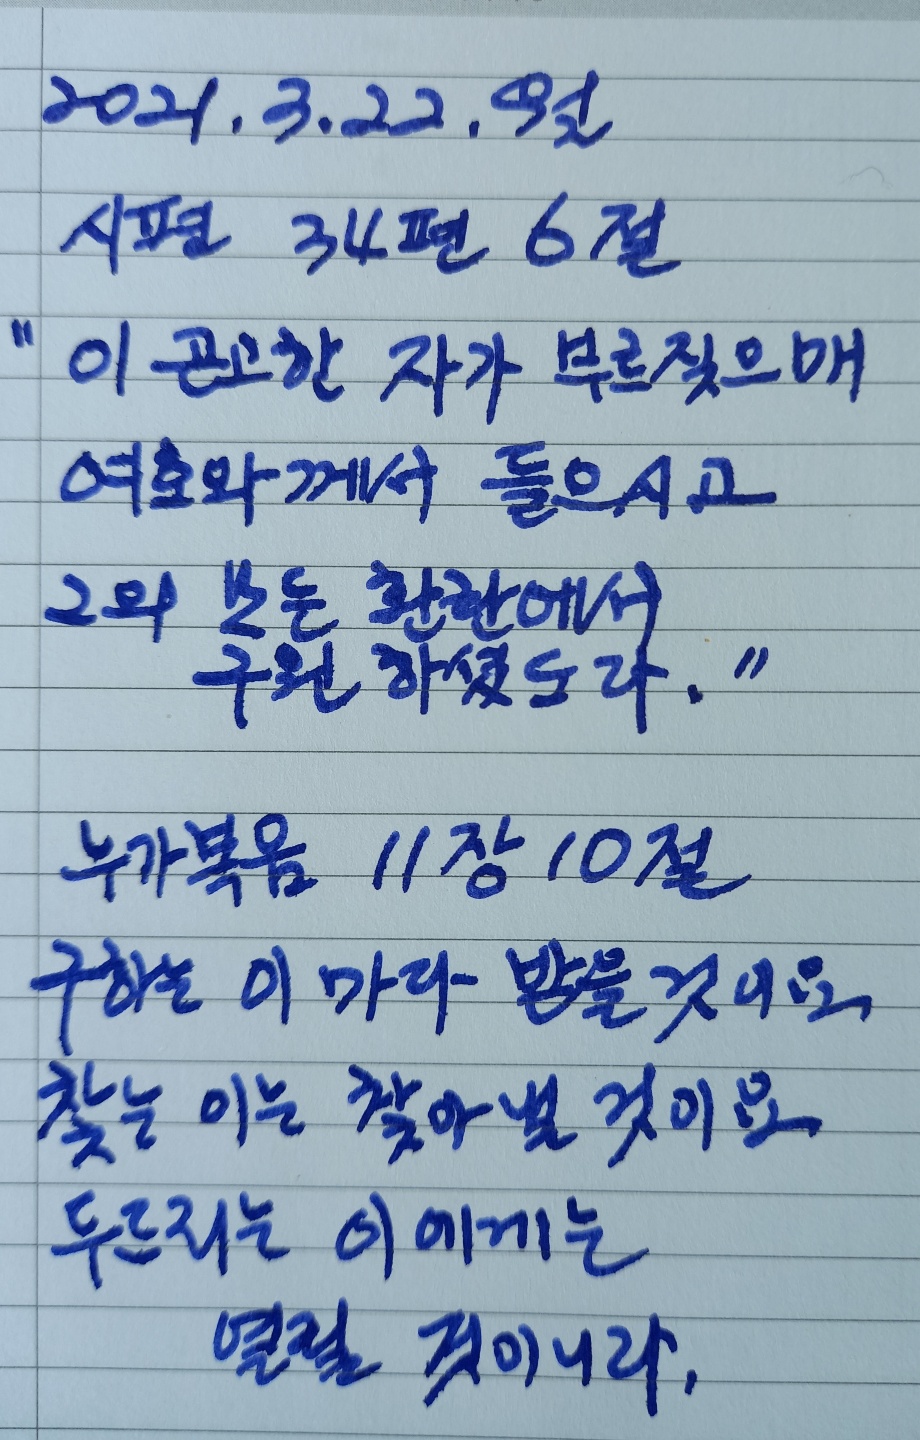 2021.3.22.월
시편 34편 6절
"이 곤고한 자가 부르짖으매
여호와께서 들으시고
그의 모든 환란에서
구원 하셨도라."
누가복음 11장 10절
구하는 이 마다 받을것이요
찾는 이는 찾아낼 것이요
두드리는 이에게는
열릴 것이니라.